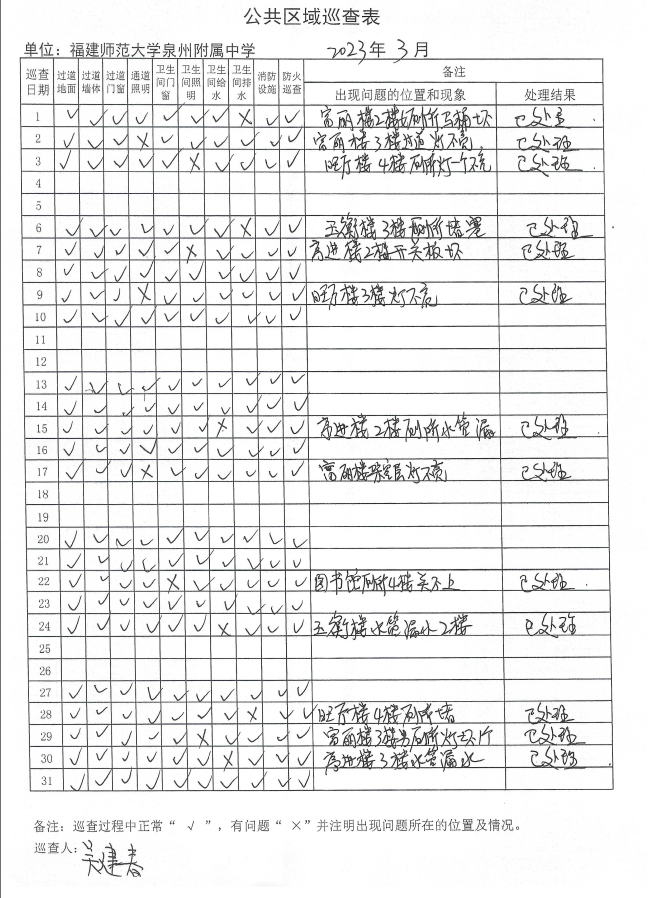 公共区域巡查表
单位：福建师范大学泉州附属中学 2023年3月
巡查日期 过道地面 过道墙体 过道门窗 通道照明 卫生间门窗 卫生间照明 卫生间给水 卫生间排水 消防设施 防火巡查 备注
出现问题的位置和现象 处理结果
1 √ √ √ √ √ √ √ × √ √ 富丽楼2楼厕所马桶坏 已处理
2 √ √ √ × √ √ √ √ √ √ 富丽楼3楼过道灯不亮 已处理
3 √ √ √ √ √ × √ √ √ √ 旺厅楼4楼厕所灯一个不亮 已处理
4
5
6 √ √ √ √ √ √ √ × √ √ 玉衡楼3楼厕所堵塞 已处理
7 √ √ √ √ √ × √ √ √ √ 高进楼2楼开关板坏 已处理
8 √ √ √ √ √ √ √ √ √ √
9 √ √ √ × √ √ √ √ √ √ 旺厅楼3楼灯不亮 已处理
10 √ √ √ √ √ √ √ √ √ √
11
12
13 √ √ √ √ √ √ √ √ √ √
14 √ √ √ √ √ √ √ √ √ √
15 √ √ √ √ √ √ × √ √ √ 高进楼2楼厕所水管漏 已处理
16 √ √ √ √ √ √ √ √ √ √
17 √ √ √ × √ √ √ √ √ √ 富丽楼架空层灯不亮 已处理
18
19
20 √ √ √ √ √ √ √ √ √ √
21 √ √ √ √ √ √ √ √ √ √
22 √ √ √ √ × √ √ √ √ √ 图书馆厕所4楼关不上 已处理
23 √ √ √ √ √ √ √ √ √ √
24 √ √ √ √ √ √ × √ √ √ 玉衡楼水管漏水2楼 已处理
25
26
27 √ √ √ √ √ √ √ √ √ √
28 √ √ √ √ √ √ √ × √ √ 旺厅楼4楼厕所堵 已处理
29 √ √ √ √ √ × √ √ √ √ 富丽楼3楼男厕所灯坏1个 已处理
30 √ √ √ √ √ √ × √ √ √ 高进楼3楼水管漏水 已处理
31 √ √ √ √ √ √ √ √ √ √
备注：巡查过程中正常“ √ ”，有问题“ ×”并注明出现问题所在的位置及情况。
巡查人：吴建春